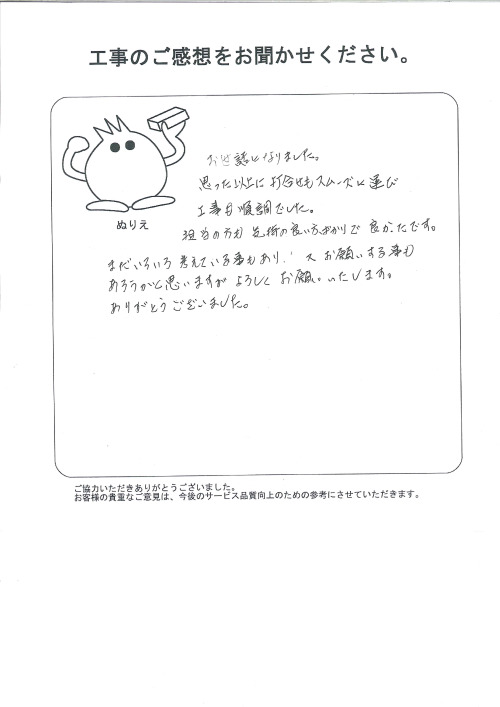 工事のご感想をお聞かせください。
ぬりえ
お世話となりました。
思った以上に打合せもスムーズに運び
工事も順調でした。
担当の方も 技術の良い方ばかりで 良かったです。
まだいろいろ 考えている事もあり、 又 お願いする事も
あろうかと思いますが よろしく お願いいたします。
ありがとうございました。
ご協力いただきありがとうございました。
お客様の貴重なご意見は、今後のサービス品質向上のための参考にさせていただきます。